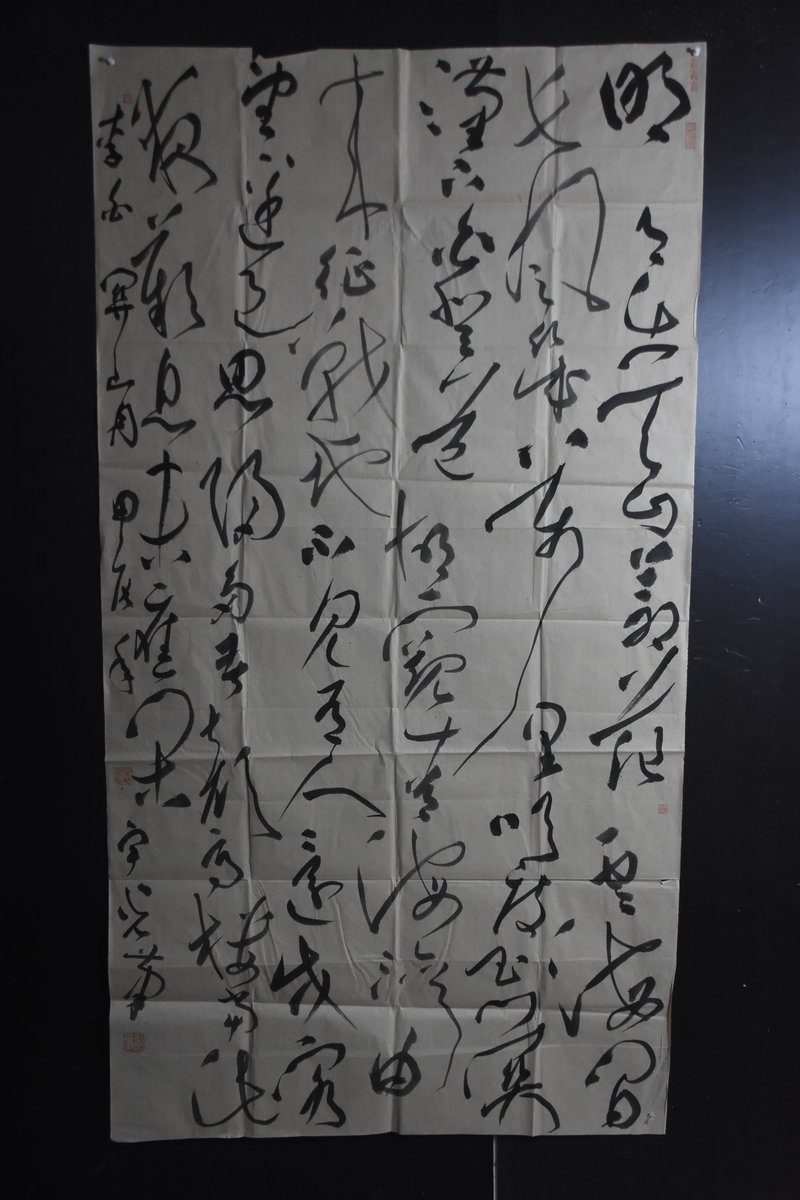 明月出天山蒼茫雲海間
長風幾萬里吹度玉門關
漢下白登道胡窺青海灣由
來征戰地不見有人還戍客
望邊邑思歸多苦顏高樓當此
夜歎息未應閑
李白 關山月 甲辰年